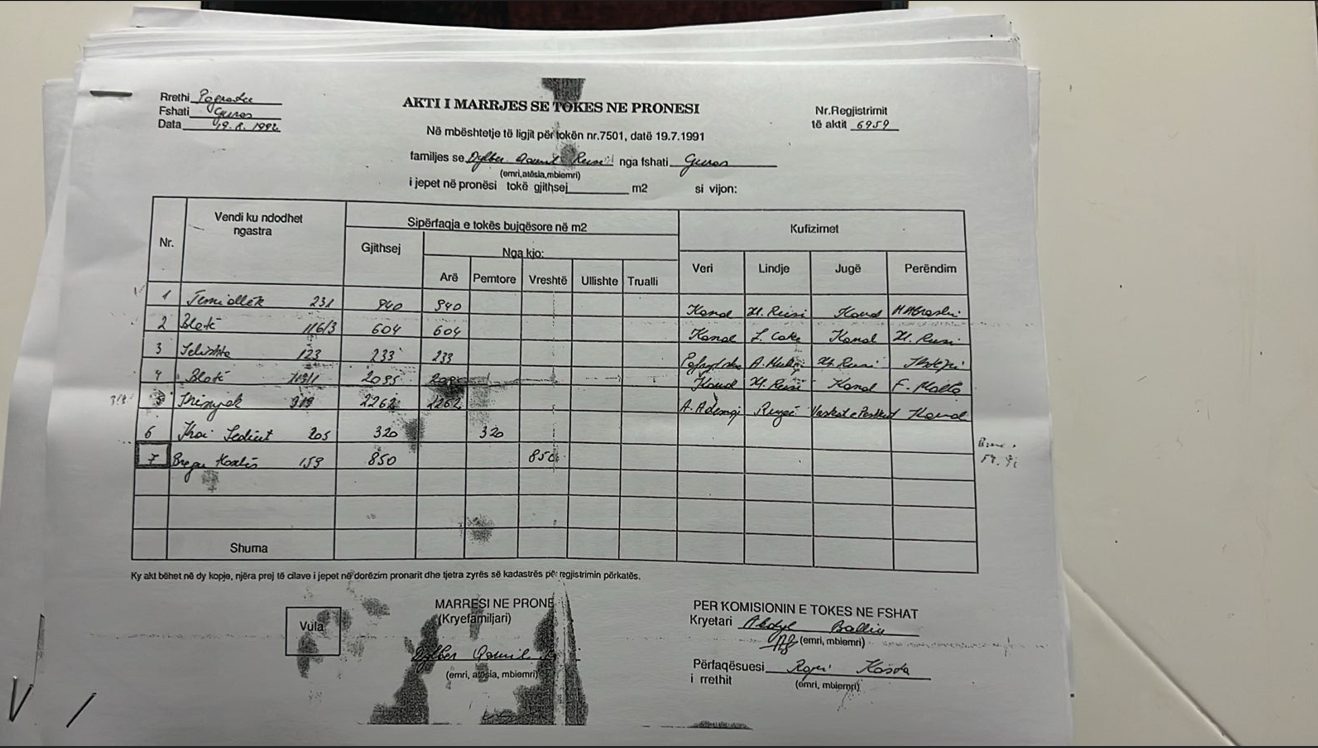 Rrethi Pogradec
Fshati Guras
Data 19.8.1992
AKTI I MARRJES SE TOKES NE PRONESI
Nr.Regjistrimit
të aktit 6959
Në mbështetje të ligjit për tokën nr.7501, datë 19.7.1991
familjes se Dylber Qamil nga fshati Guras
(emri,atësia,mbiemri)
i jepet në pronësi tokë gjithsej m2 si vijon:
Nr. Vendi ku ndodhet ngastra Sipërfaqja e tokës bujqësore në m2 Kufizimet
Gjithsej Nga kjo:
Arë Pemtore Vreshtë Ullishte Trualli Veri Lindje Jugë Perëndim
1 231 940 940 Kanal Xh. Rusi Kanal
2 Blatë 116/3 604 604 Kanal L. Cake Kanal Xh. Rusi
3 Selishte 123 233 233 Xh. Rusi
4 Blatë 2095 Kanal Xh. Rusi Kanal F. Mallo
2262 2262 Rrugë Kanal
6 Kroi 205 320 320
7 159 850 850
Shuma
Ky akt bëhet në dy kopje, njëra prej të cilave i jepet në dorëzim pronarit dhe tjetra zyrës së kadastrës për regjistrimin përkatës.
Vula
MARRESI NE PRONE
(Kryefamiljari)
Dylber Qamil
(emri, atësia, mbiemri)
PER KOMISIONIN E TOKES NE FSHAT
Kryetari Abdyl Balliu
(emri, mbiemri)
Përfaqësuesi
i rrethit
(emri, mbiemri)